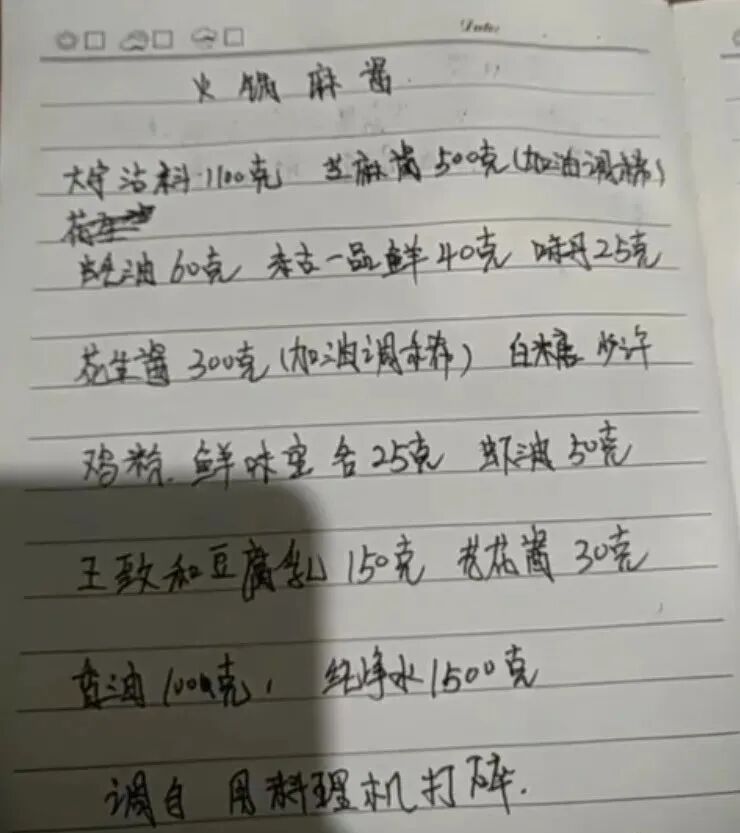 Date:
火锅麻酱
大宇沾料1100克 芝麻酱500克(加油调稀)
蚝油60克 一品鲜40克 味丹25克
花生酱300克(加油调稀) 白米醋少许
鸡粉.鲜味宝各25克 虾油50克
王致和豆腐乳150克 韭花酱30克
香油100克, 纯净水1500克
调自 用料理机打碎.